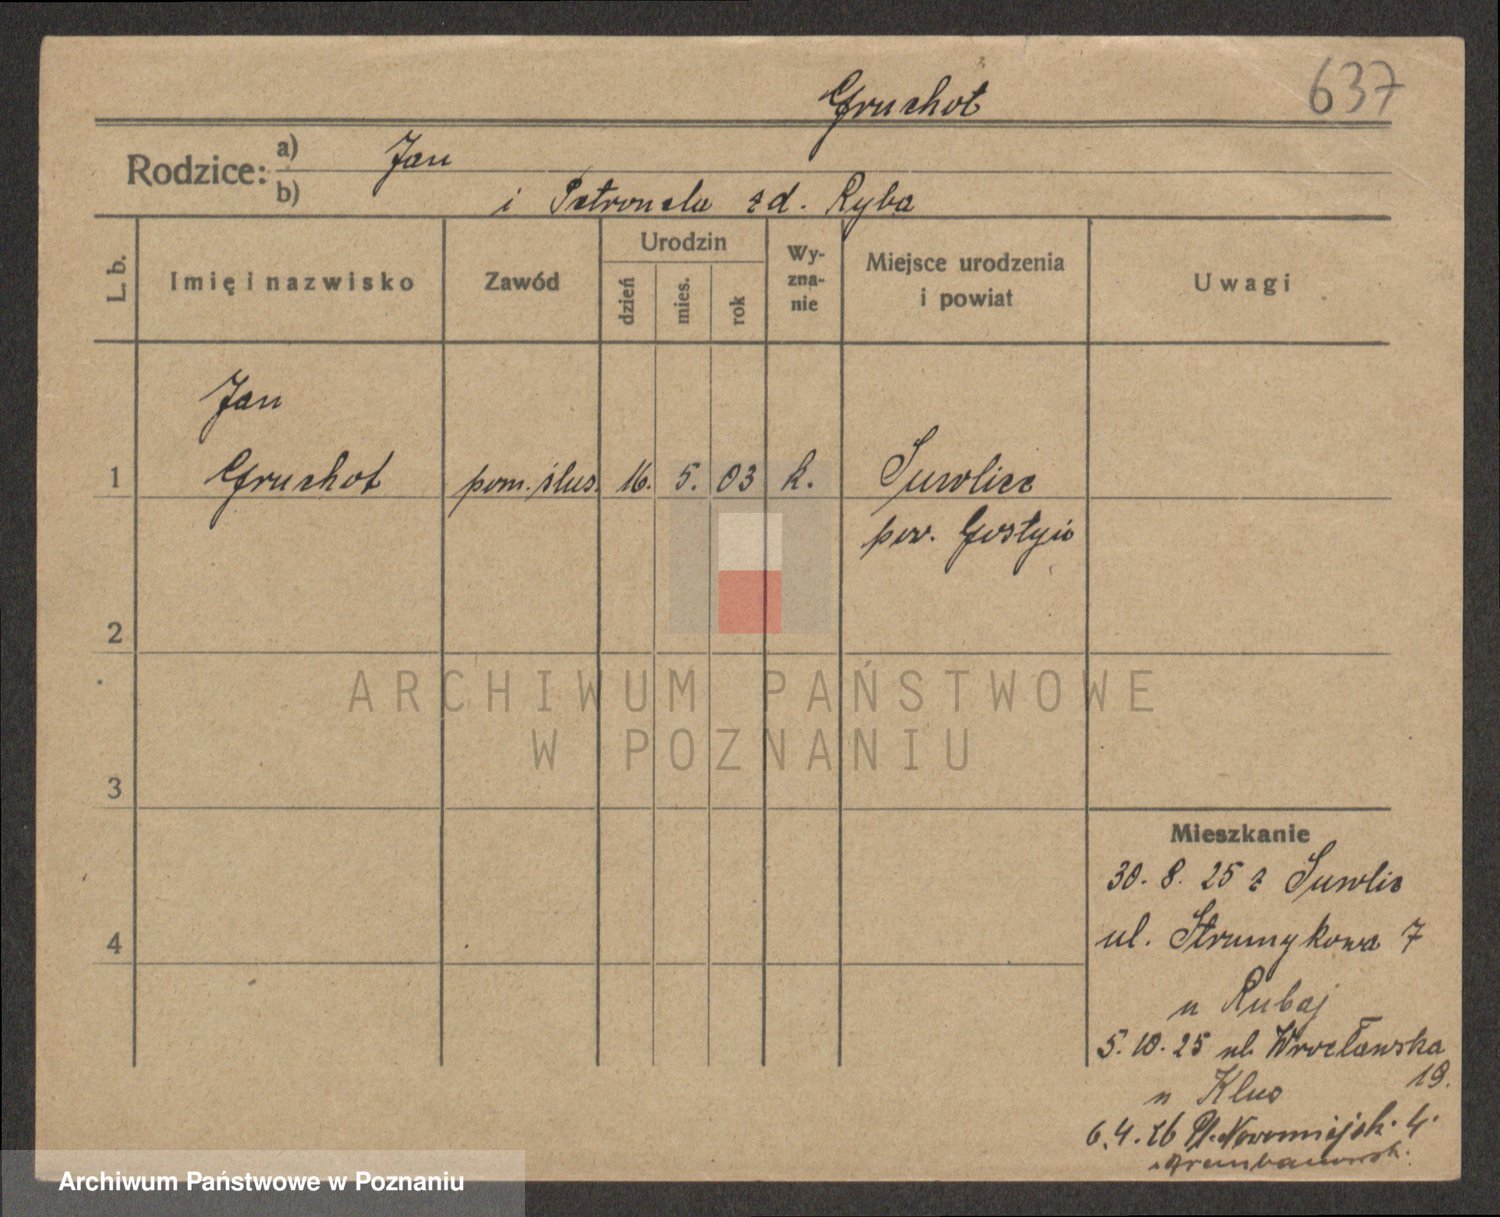 637
Gruchot
Rodzice: a) Jan
b) i Petronela zd. Ryba
L. b. Imię i nazwisko Zawód Urodzin dzień mies. rok Wyznanie Miejsce urodzenia i powiat Uwagi
Jan
1 Gruchot pom. ślus. 16. 5. 03 k.
pow. Gostyń
2
ARCHIWUM PAŃSTWOWE
W POZNANIU
3
Mieszkanie
30. 8. 25 z
4 ul. Strumykowa 7
u Rubaj
5. 10. 25 ul. Wrocławska
19.
u Klus
6. 4. 26 Pl. Nowomiejsk. 4.
Archiwum Państwowe w Poznaniu